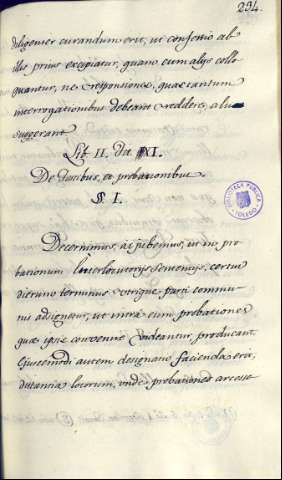 294.
diligenter curandum erit, ut consortio ab
illis prius excipiatur, quam cum alijs collo
quantur, ne responsiones, quas tantum
interrogationibus debeant reddere, alij
suggerant
Lib II. tit XI.
De testibus, et probationibus.
§. I.
Decernimus, ac jubemus, ut in pro
bationum Interlocutorijs Sententijs, certus
dierum terminus utrique parti commu
nis adsignetur, ut intra eum probationes
quas ipse convenire videantur, producant.
Ejusmodi autem designatio facienda erit,
distantia locorum, unde probationes arcesse
BIBLIOTECA PUBLICA
TOLEDO